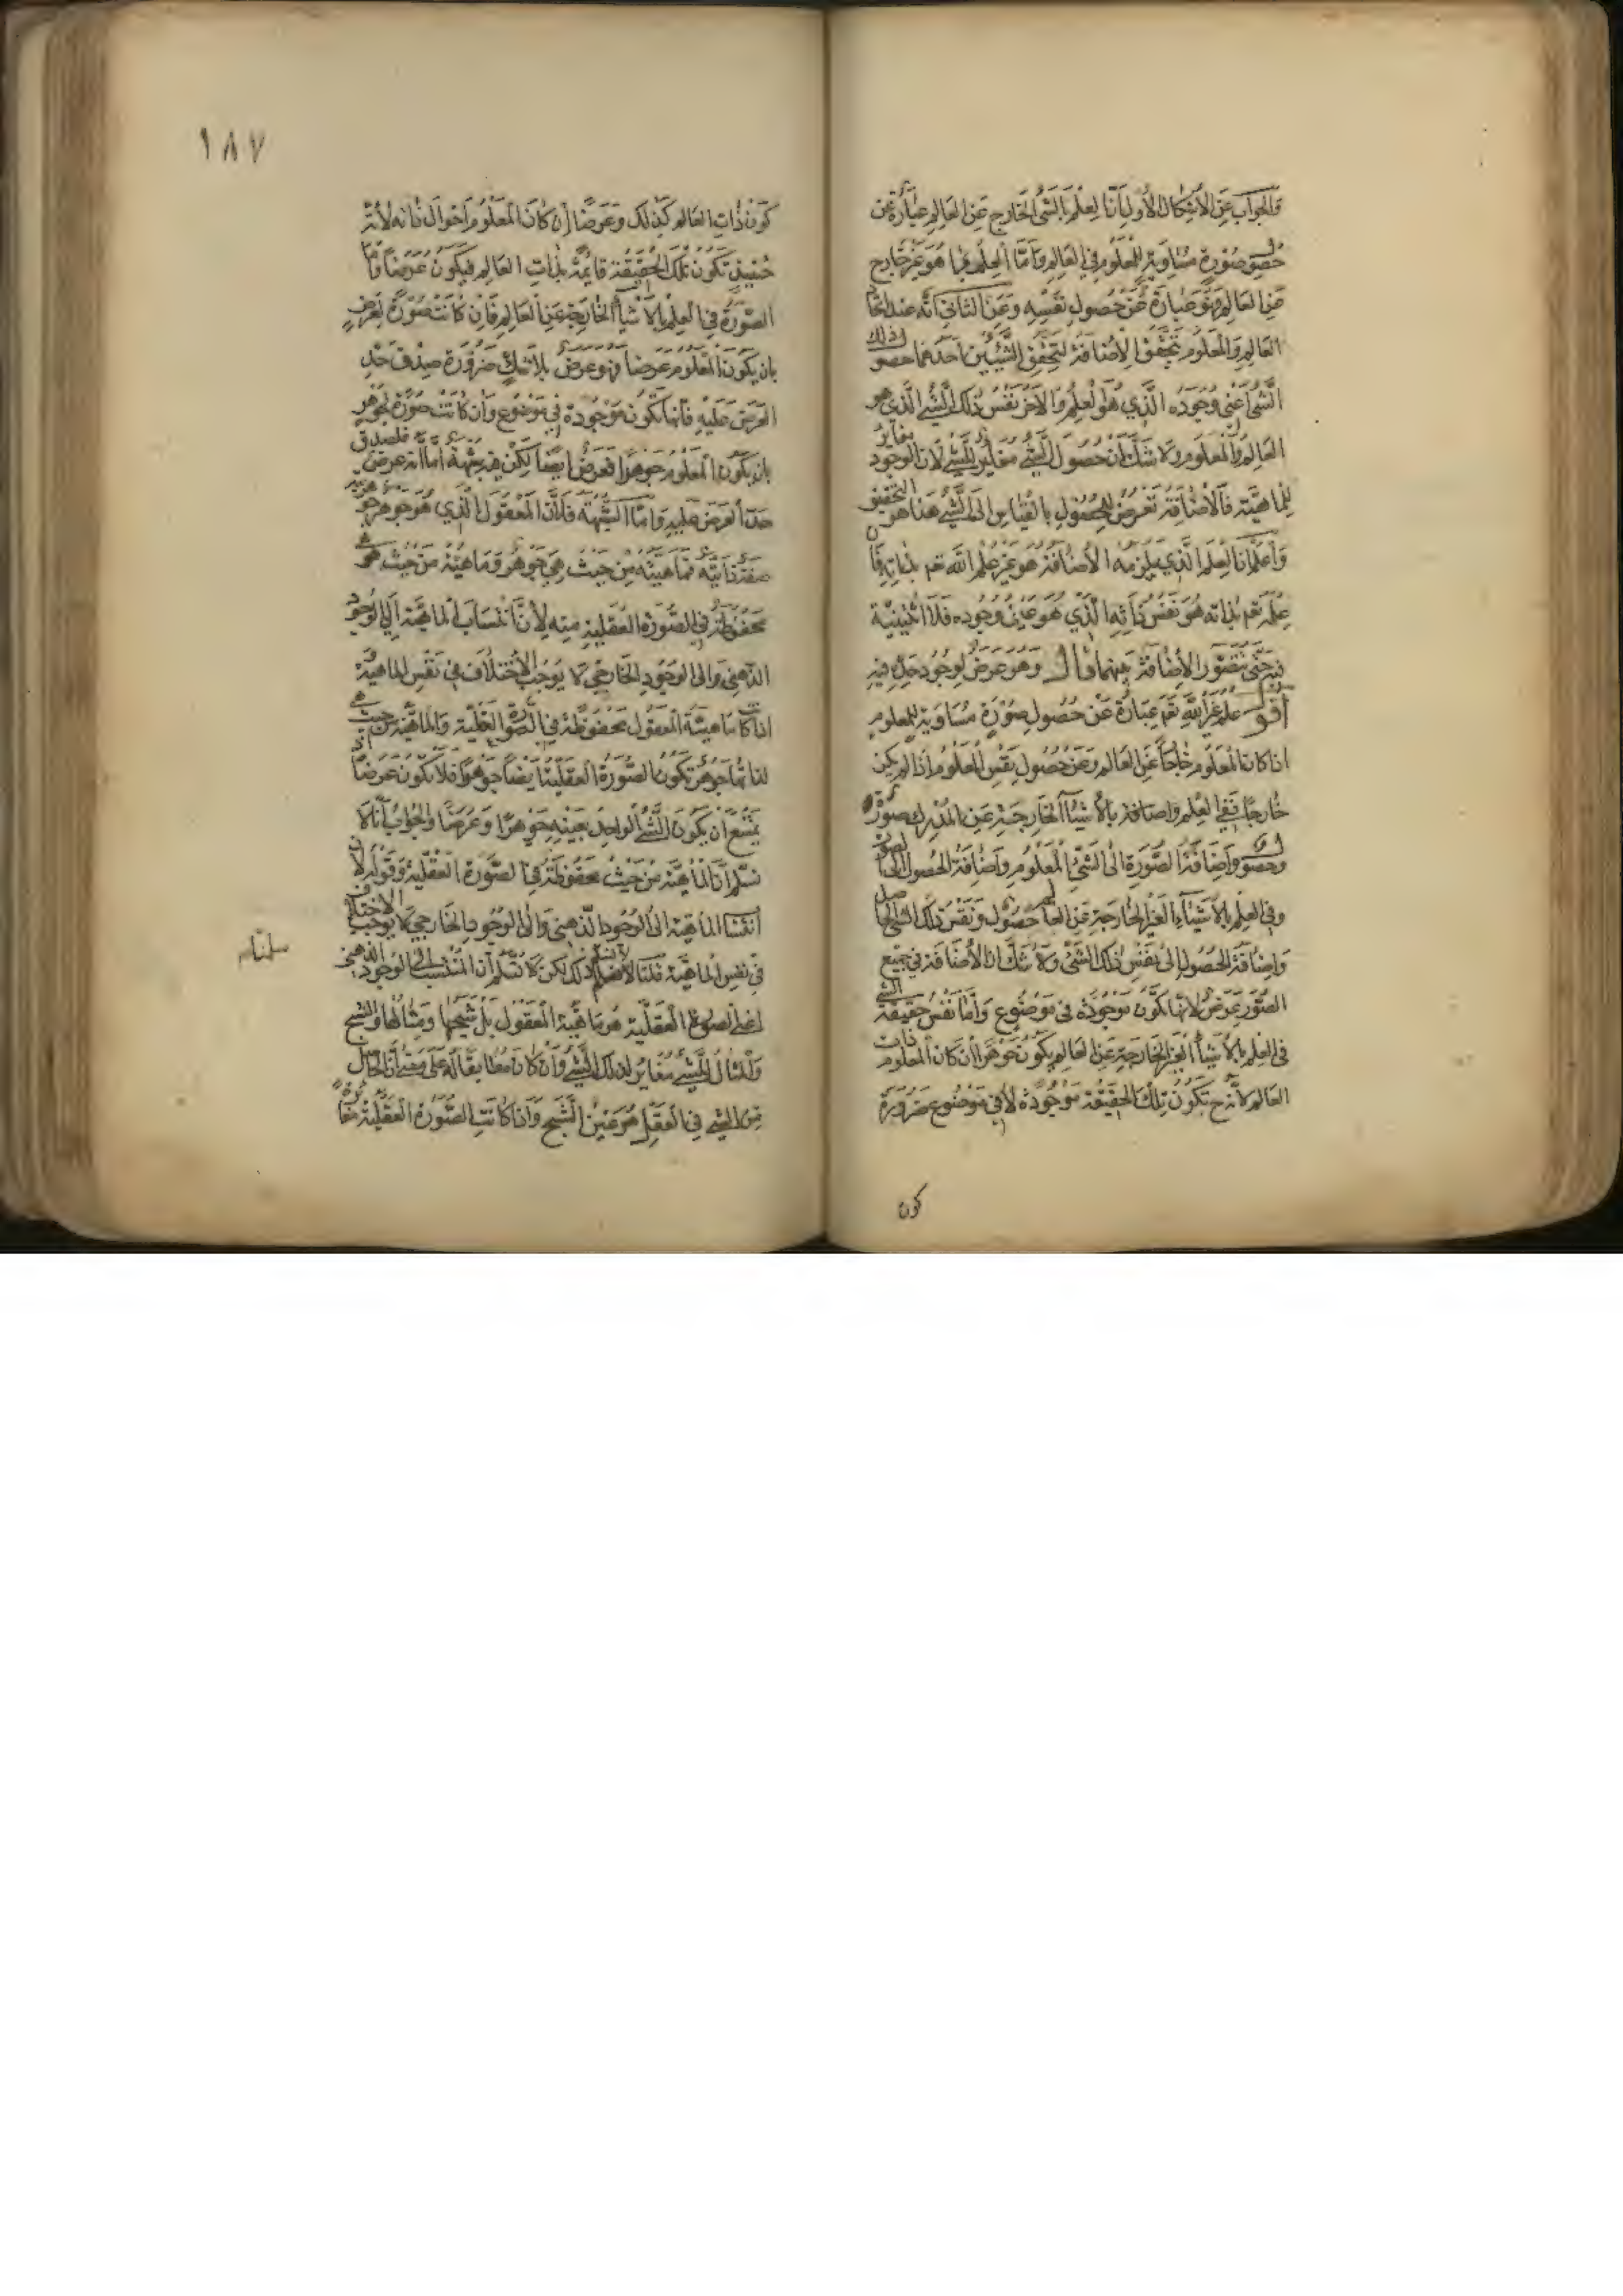 والجواب عن الاشكال الاول ان العلم بالشئ الخارج عن العالم عبارة عن
حصول صورة مساوية للمعلوم في العالم واما العلم بما هو غير خارج
عن العالم فهو عبارة عن حصول نفسه وعن الثاني انه عند اتحاد
العالم والمعلوم تتحقق الاضافة لتحقق الشيئين احدهما حصول ذلك
الشئ اعني وجوده الذي هو العلم والاخر نفس ذلك الشئ الذي هو
العالم والمعلوم ولا شك ان حصول الشئ مغاير للشئ لان الوجود مغاير
للماهية فالاضافة تعرض للحصول بالقياس الى الشئ هذا هو التحقيق
واعلم ان العلم الذي يلزمه الاضافة هو غير علم الله تعم بذاته فان
علمه تعم بذاته هو نفس ذاته الذي هو عين وجوده فلا اثنينية
فيه حتى تتصور الاضافة بينهما قال وهو عرض لوجود حده فيه
اقول علم غير الله تعم عبارة عن حصول صورة مساوية للمعلوم
اذا كان المعلوم خارجا عن العالم وعن حصول نفس المعلوم اذا لم يكن
خارجا ففي العلم واضافة بالاشياء الخارجية عن المدرك صورة
وحصول واضافة الصورة الى الشئ المعلوم واضافة الحصول الى الصورة
وفي العلم بالاشياء الغير الخارجة عن العالم حصول ونفس ذلك الشئ الحاصل
واضافة الحصول الى نفس ذلك الشئ ولا شك ان الاضافة في جميع
الصور عرض لانها تكون موجودة في موضوع واما نفس حقيقة الشئ
في العلم بالاشياء الغير الخارجة عن العالم يكون جوهرا ان كان المعلوم ذات
العالم لانه ح تكون تلك الحقيقة موجودة لا في موضوع ضرورة
كون
١٨٧
كون ذات العالم كذلك وعرضا ان كان المعلوم احوال ذاته لانه
حينئذ تكون تلك الحقيقة قائمة بذات العالم فيكون عرضا واما
الصورة في العلم بالاشياء الخارجة عن العالم فان كانت صورة لعرض
بان يكون المعلوم عرضا فهو عرض بلا شك ضرورة صدق حد
العرض عليه فانها تكون موجودة في موضوع وان كانت صورة لجوهر
بان يكون المعلوم جوهرا فعرض ايضا لكن فيه شبهة اما انه عرض فلصدق
حد العرض عليه واما الشبهة فلان المعقول الذي هو جوهر جوهريته
صفة ذاتية فماهيته من حيث هي جوهر وماهيته من حيث هي
محفوظة في الصورة العقلية منه لان انتساب الماهية الى الوجود
الذهني والى الوجود الخارجي لا يوجب الاختلاف في نفس الماهية
اذا كانت ماهية المعقول محفوظة في الصورة العقلية والماهية من حيث هي
لذاتها جوهر تكون الصورة العقلية ايضا جوهرا فلا تكون عرضا اذ
يمتنع ان يكون الشئ الواحد بعينه جوهرا وعرضا والجواب انا لا
نسلم ان الماهية من حيث محفوظة في الصورة العقلية وقوله لان
انتساب الماهية الى الوجود الذهني والى الوجود الخارجي لا يوجب الاختلاف
في نفس الماهية قلنا لا نسلم ذلك لكن لا نسلم ان المنتسب الى الوجود الذهني
سلمناه
اعني الصورة العقلية هو ماهية المعقول بل شبحها ومثالها والشبح
والمثال للشئ مغاير لذلك الشئ وان كان مطابقا له على معنى ان الحاصل
من الشئ في العقل هو عين الشبح واذا كانت الصورة العقلية مغايرة